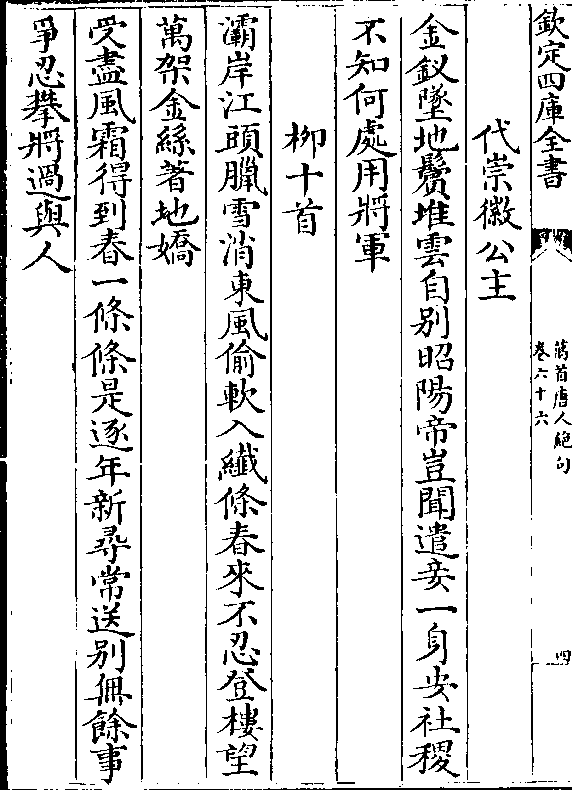 欽定四庫全書
萬首唐人絶句
卷六十六
四
代崇徽公主
金釵墜地鬢堆雲自别昭陽帝豈聞遣妾一身安社稷
不知何處用將軍
柳十首
灞岸江頭臘雪消東風偷軟入纎條春來不忍登樓望
萬架金絲著地嬌
受盡風霜得到春一條條是逐年新尋常送别無餘事
爭忍攀將過與人